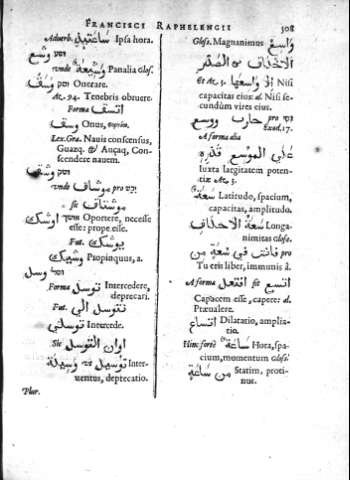 FRANCISCI RAPHELENGII 508
Adverb. ساعتيذ Ipsa hora.
וסע وشع
unde وشيعة Panalia Glos.
וסק وسق Onerare.
Ac. 94. Tenebris obruere.
Forma اتسق
وسق Onus,
Lex.Gra. Navis conscensus,
Guazq. & Auçaq, Con-
scendere navem.
وشق
unde موشاق pro
sic موشتاق
اوشك Oportere, necesse
esse: prope esse.
Fut. يوشك
وشيك Propinquus, a.
וסל وسل
Forma توسل Intercedere,
deprecari.
Fut. نتوسل الي
توسلي Intercede.
Sic اوان التوسل
وسيلة ut توسيل Inter-
ventus, deprecatio.
Plur.
Glos. Magnanimus واسع
الاخلاف الصدر
Et Ac. 5. الي واسعها Nisi
capacitas eius: al. Nisi se-
cundùm vires eius.
ووسع حارب pro
Exod. 17.
A forma alia
علي الموسع قدره
Iuxta largitatem poten-
tiæ Ac. 3.
سعة Latitudo, spacium,
capacitas, amplitudo.
سعة الاخلاف Longa-
nimitas Glos.
فانت في سعة من pro
Tu eris liber, immunis à.
A forma افتعل fit اتسع
Capacem esse, capere: al.
Prævalere.
اتساع Dilatatio, amplia-
tio.
Hinc fortè ساعة Hora, spa-
cium, momentum Glos.
من ساعة Statim, proti-
nus.